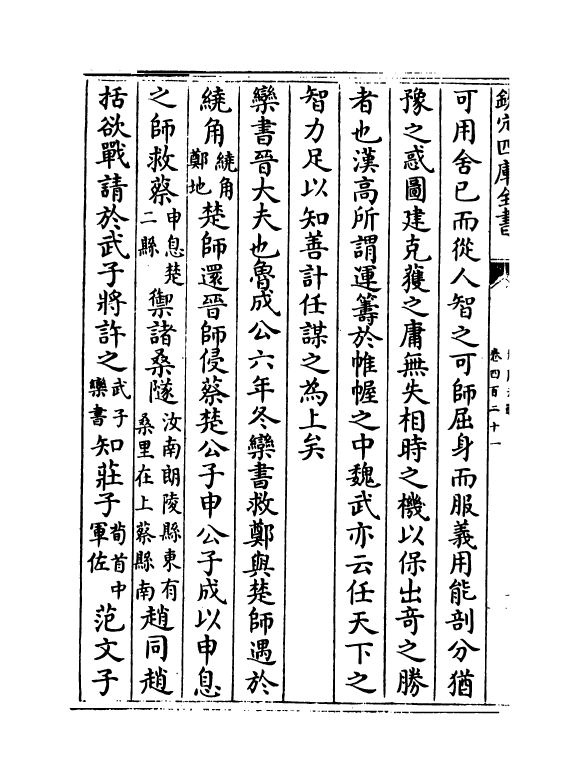 欽定四庫全書
卷四百二十一
可用舍已而從人智之可師屈身而服義用能剖分猶
豫之惑圖建克獲之庸無失相時之機以保出奇之勝
者也漢高所謂運籌於帷幄之中魏武亦云任天下之
智力足以知善計任謀之為上矣
欒書晉大夫也魯成公六年冬欒書救鄭與楚師遇於
繞角繞角鄭地楚師還晉師侵蔡楚公子申公子成以申息
之師救蔡申息楚二縣禦諸桑隧汝南朗陵縣東有桑里在上蔡縣南趙同趙
括欲戰請於武子將許之武子欒書知莊子荀首中軍佐范文子